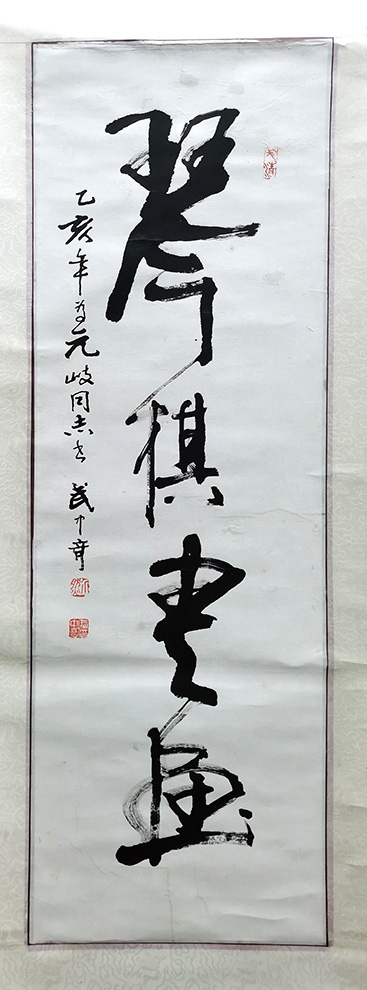 琴棋書画
乙亥年为元岐同志书 武中奇